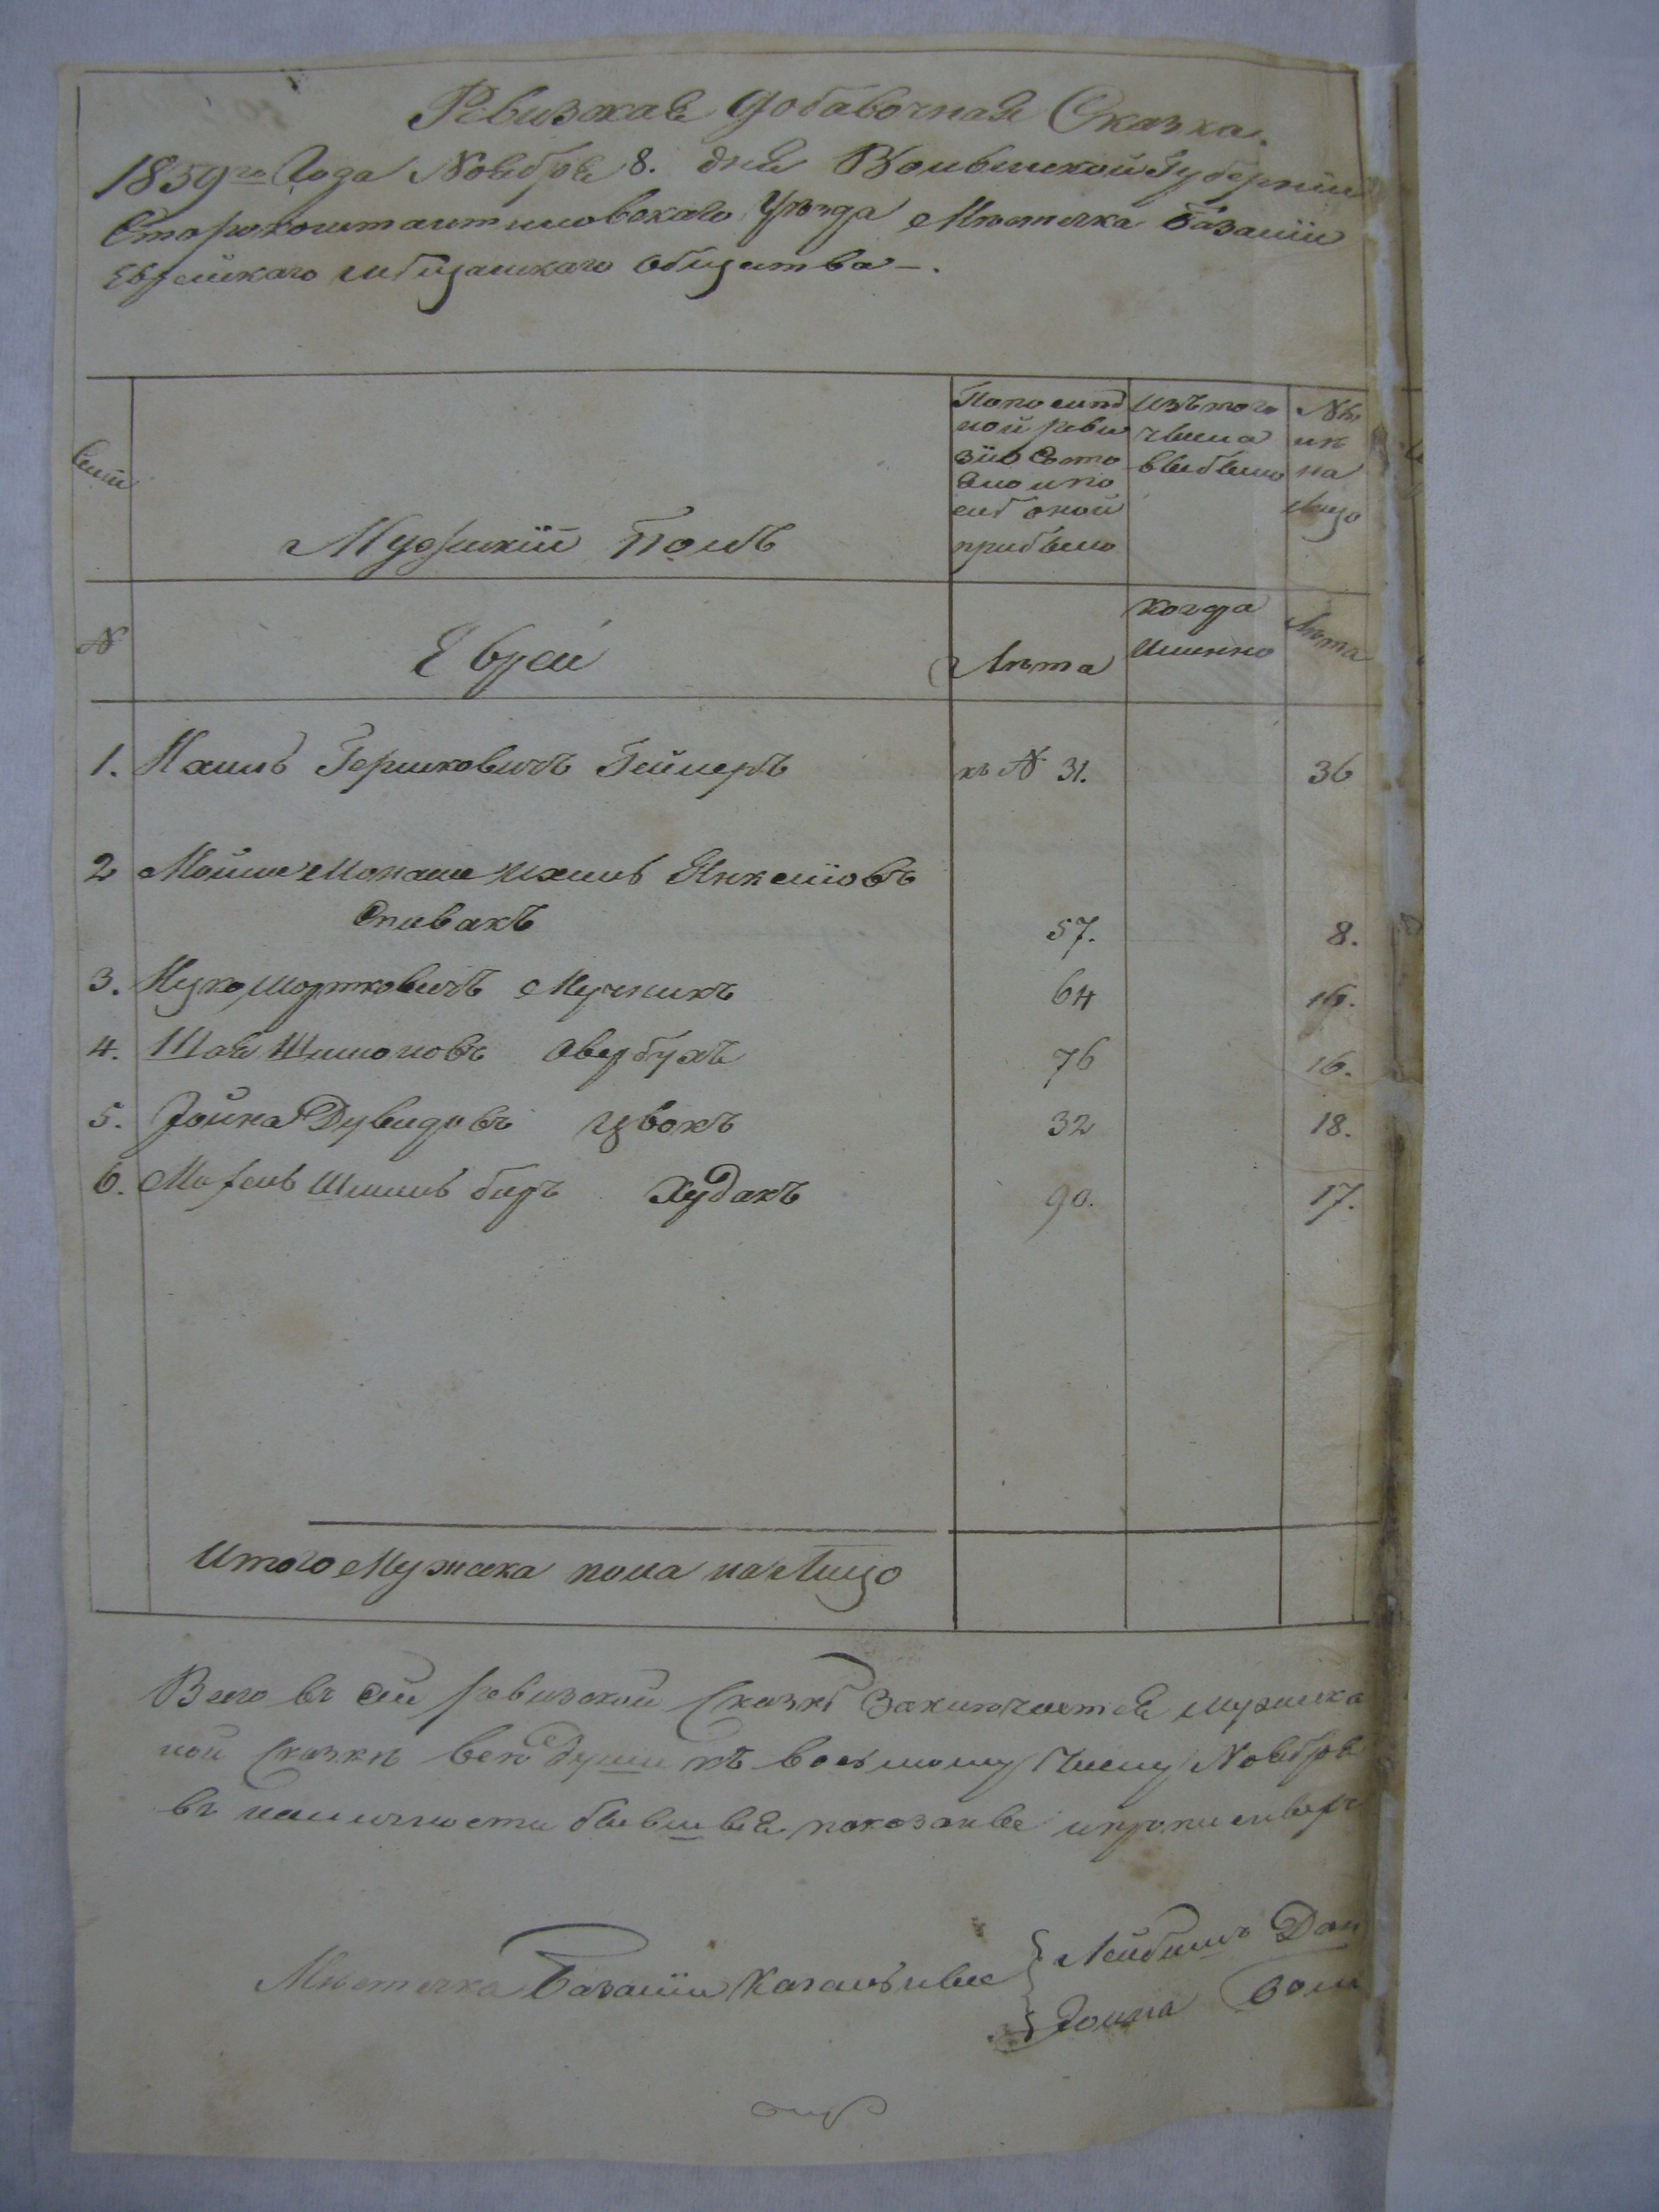 Ревизкая Добавочная Сказка.
1839го Года Ноября 8. дня Волынской Губернии
Староконстантиновскаго Уѣзда Мѣстечка Базаліи
Еврейскаго мѣщанскаго общества —.
Мужескій Полъ
По послѣд
ной реви
зіи состо
яло и по
слѣ оной
прибыло
Изъ того
числа
выбыло
Ны
нѣ
на
лицо
№
Евреи
Лѣта
Когда
Именно
Лѣта
1. Хаимъ Гершковичъ къ № 31. 36
2 Мойше Янкеліовъ
Спивакъ 57. 8.
3. Мортковичъ Мучникъ 64 16.
4. Шая Шимоновъ Авербухъ 76 16.
5. Іойна Дувидовъ Цвокъ 32 18.
6. Худакъ 90. 17.
Итого Мужска пола на Лицо
Всего въ сей ревизской сказкѣ заключается мужска
ной сказкѣ всѣ души къ восьмому числу Ноября
въ наличности бывшыя показаны и
Мѣстечка Базаліи Кагальные
Лейбишъ Дан
Іойна